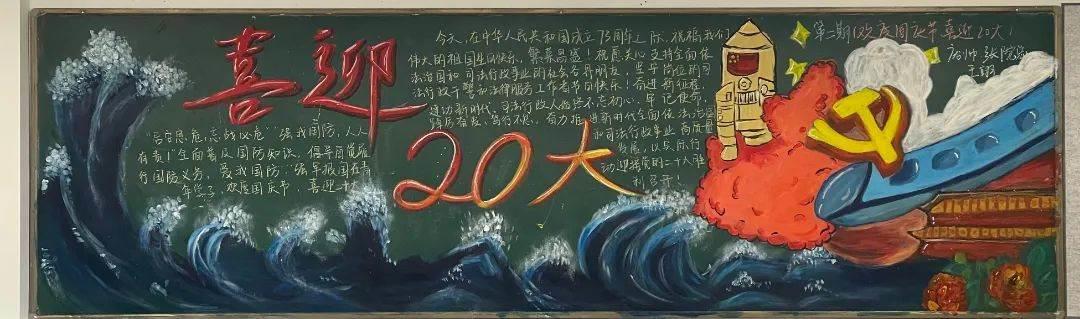 喜迎
20大
今天,在中华人民共和国成立73周年之际,祝福我们
伟大的祖国生日快乐,繁荣昌盛!祝愿关心支持全面依
法治国和司法行政事业的社会各界朋友,坚守岗位的司
法行政干警和法律服务工作者节日快乐!奋进新征程,
建功新时代,司法行政人始终不忘初心,牢记使命,
踔厉奋发,笃行不怠,奋力推进新时代全面依法治
和司法行政事业高质量
发展,以实际行
动迎接党的二十大胜
利召开!
"居安思危,忘战必危"强我国防,人人
有责!全面普及国防知识,倡导
行国防义务,爱我国防"强军报国
年 欢度国庆节,喜迎二十大
第二期《欢度国庆节 喜迎20大》